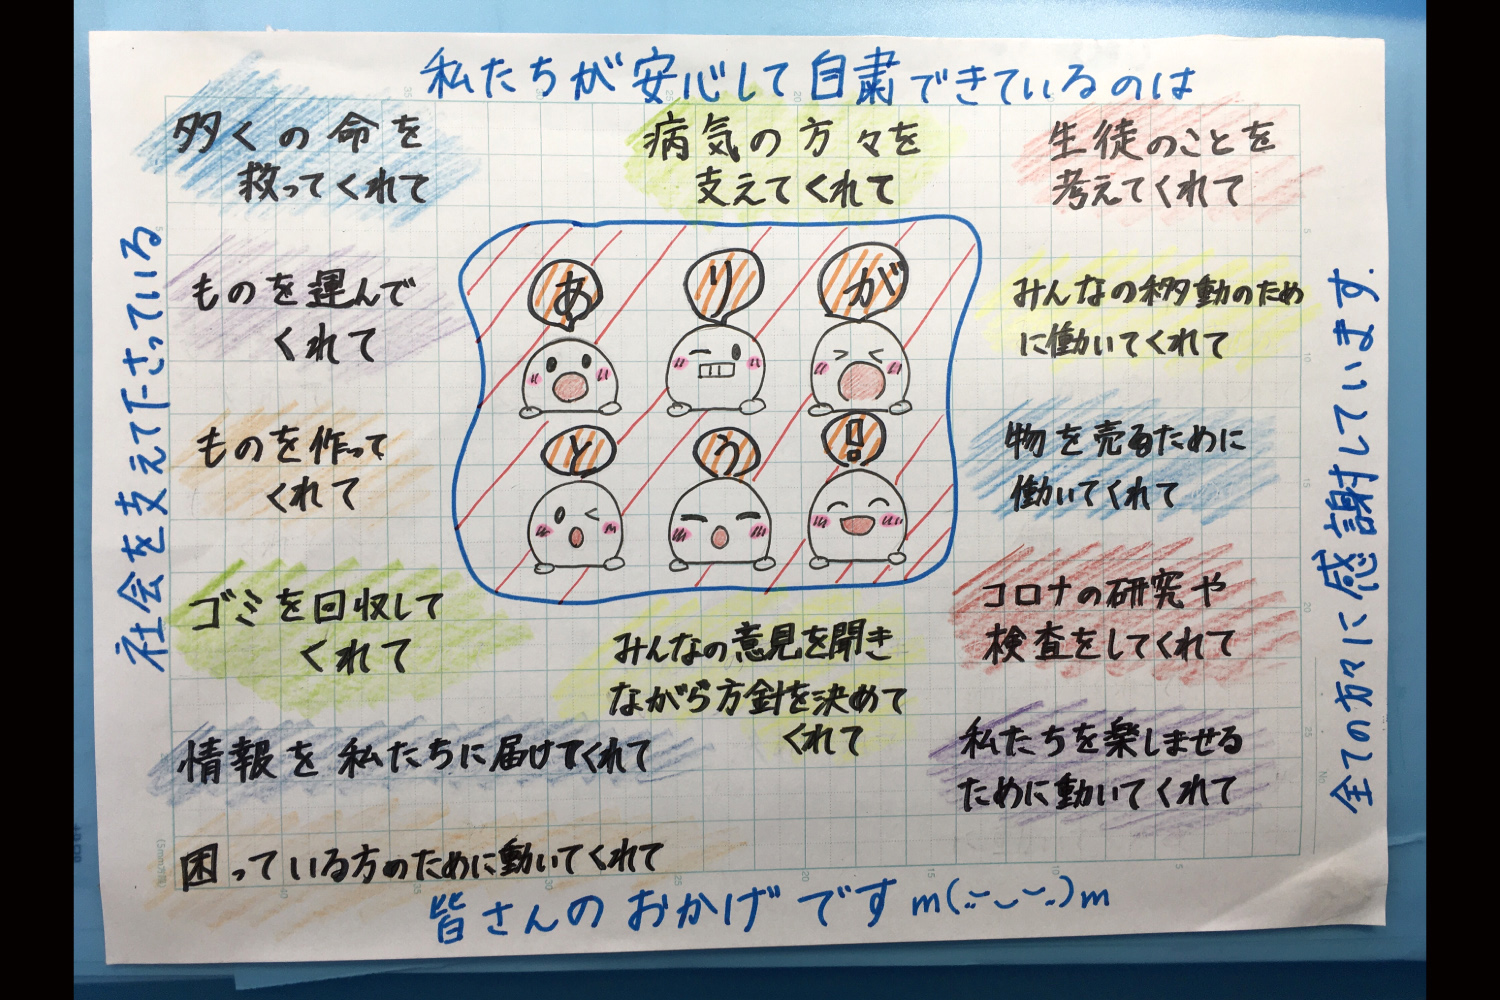 私たちが安心して自粛できているのは
多くの命を
救ってくれて
病気の方々を
支えてくれて
生徒のことを
考えてくれて
ものを運んで
くれて
みんなの移動のため
に働いてくれて
ものを作って
くれて
物を売るために
働いてくれて
あ
り
が
と
う
!
ゴミを回収して
くれて
コロナの研究や
検査をしてくれて
みんなの意見を聞き
ながら方針を決めて
くれて
情報を私たちに届けてくれて
私たちを楽しませる
ために動いてくれて
困っている方のために動いてくれて
皆さんのおかげです m(..)m
社会を支えて下さっている
全ての方々に感謝しています.